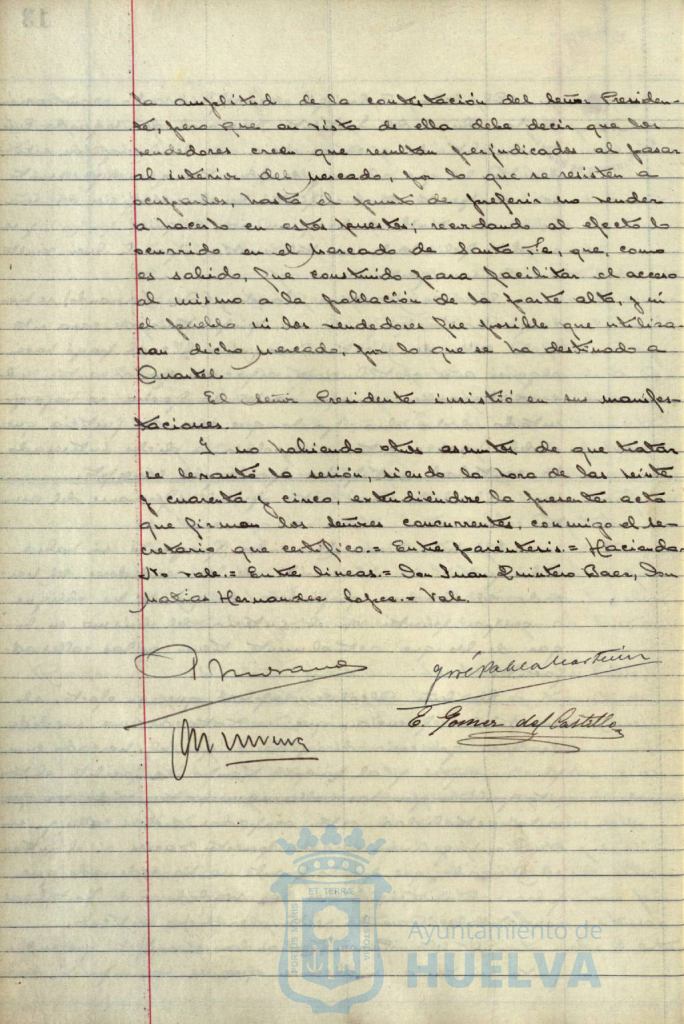 la amplitud de la contestación del Señor Presiden-
te, pero que en vista de ella debe decir que los
vendedores creen que resultan perjudicados al pasar
al interior del mercado, por lo que se resisten a
ocuparlos, hasta el punto de preferir no vender
a hacerlo en estos puestos; recordando al efecto lo
ocurrido en el Mercado de Santa Fe, que, como
es sabido, fue construido para facilitar el acceso
al mismo a la población de la parte alta, y ni
el pueblo ni los vendedores fue posible que utiliza-
ran dicho mercado, por lo que se ha destinado a
Cuartel
El Señor Presidente insistió en sus manifes-
taciones.
Y no habiendo otros asuntos de que tratar
se levantó la sesión, siendo la hora de las veinte
y cuarenta y cinco, extendiéndose la presente acta
que firman los Señores concurrentes, conmigo el Se-
cretario que certifico.= Entre paréntesis.= Hacienda
No vale.= Entre lineas.= Don Juan Quintero Baez, Don
Matias Hernandez Lopez.= Vale.
E. Gomez del Castillo
ET TERRAE
PORTUS MARIS
CUSTODIA
Ayuntamiento de
HUELVA